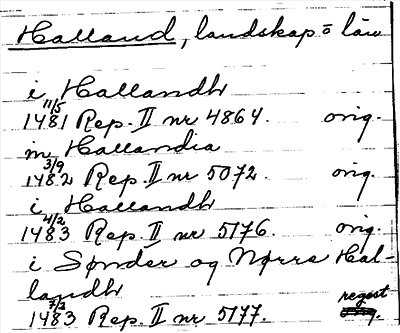 Halland, landskap o län
i Hallandh
11/5
1481 Rep. II nr 4864. orig.
in Hallandia
3/9
1482 Rep. II nr 5072. orig.
i Hallandh
4/2
1483 Rep. II nr 5176. orig.
i Sønder og Nørre Hal-
landh
7/2 regest
1483 Rep. II nr 5177.